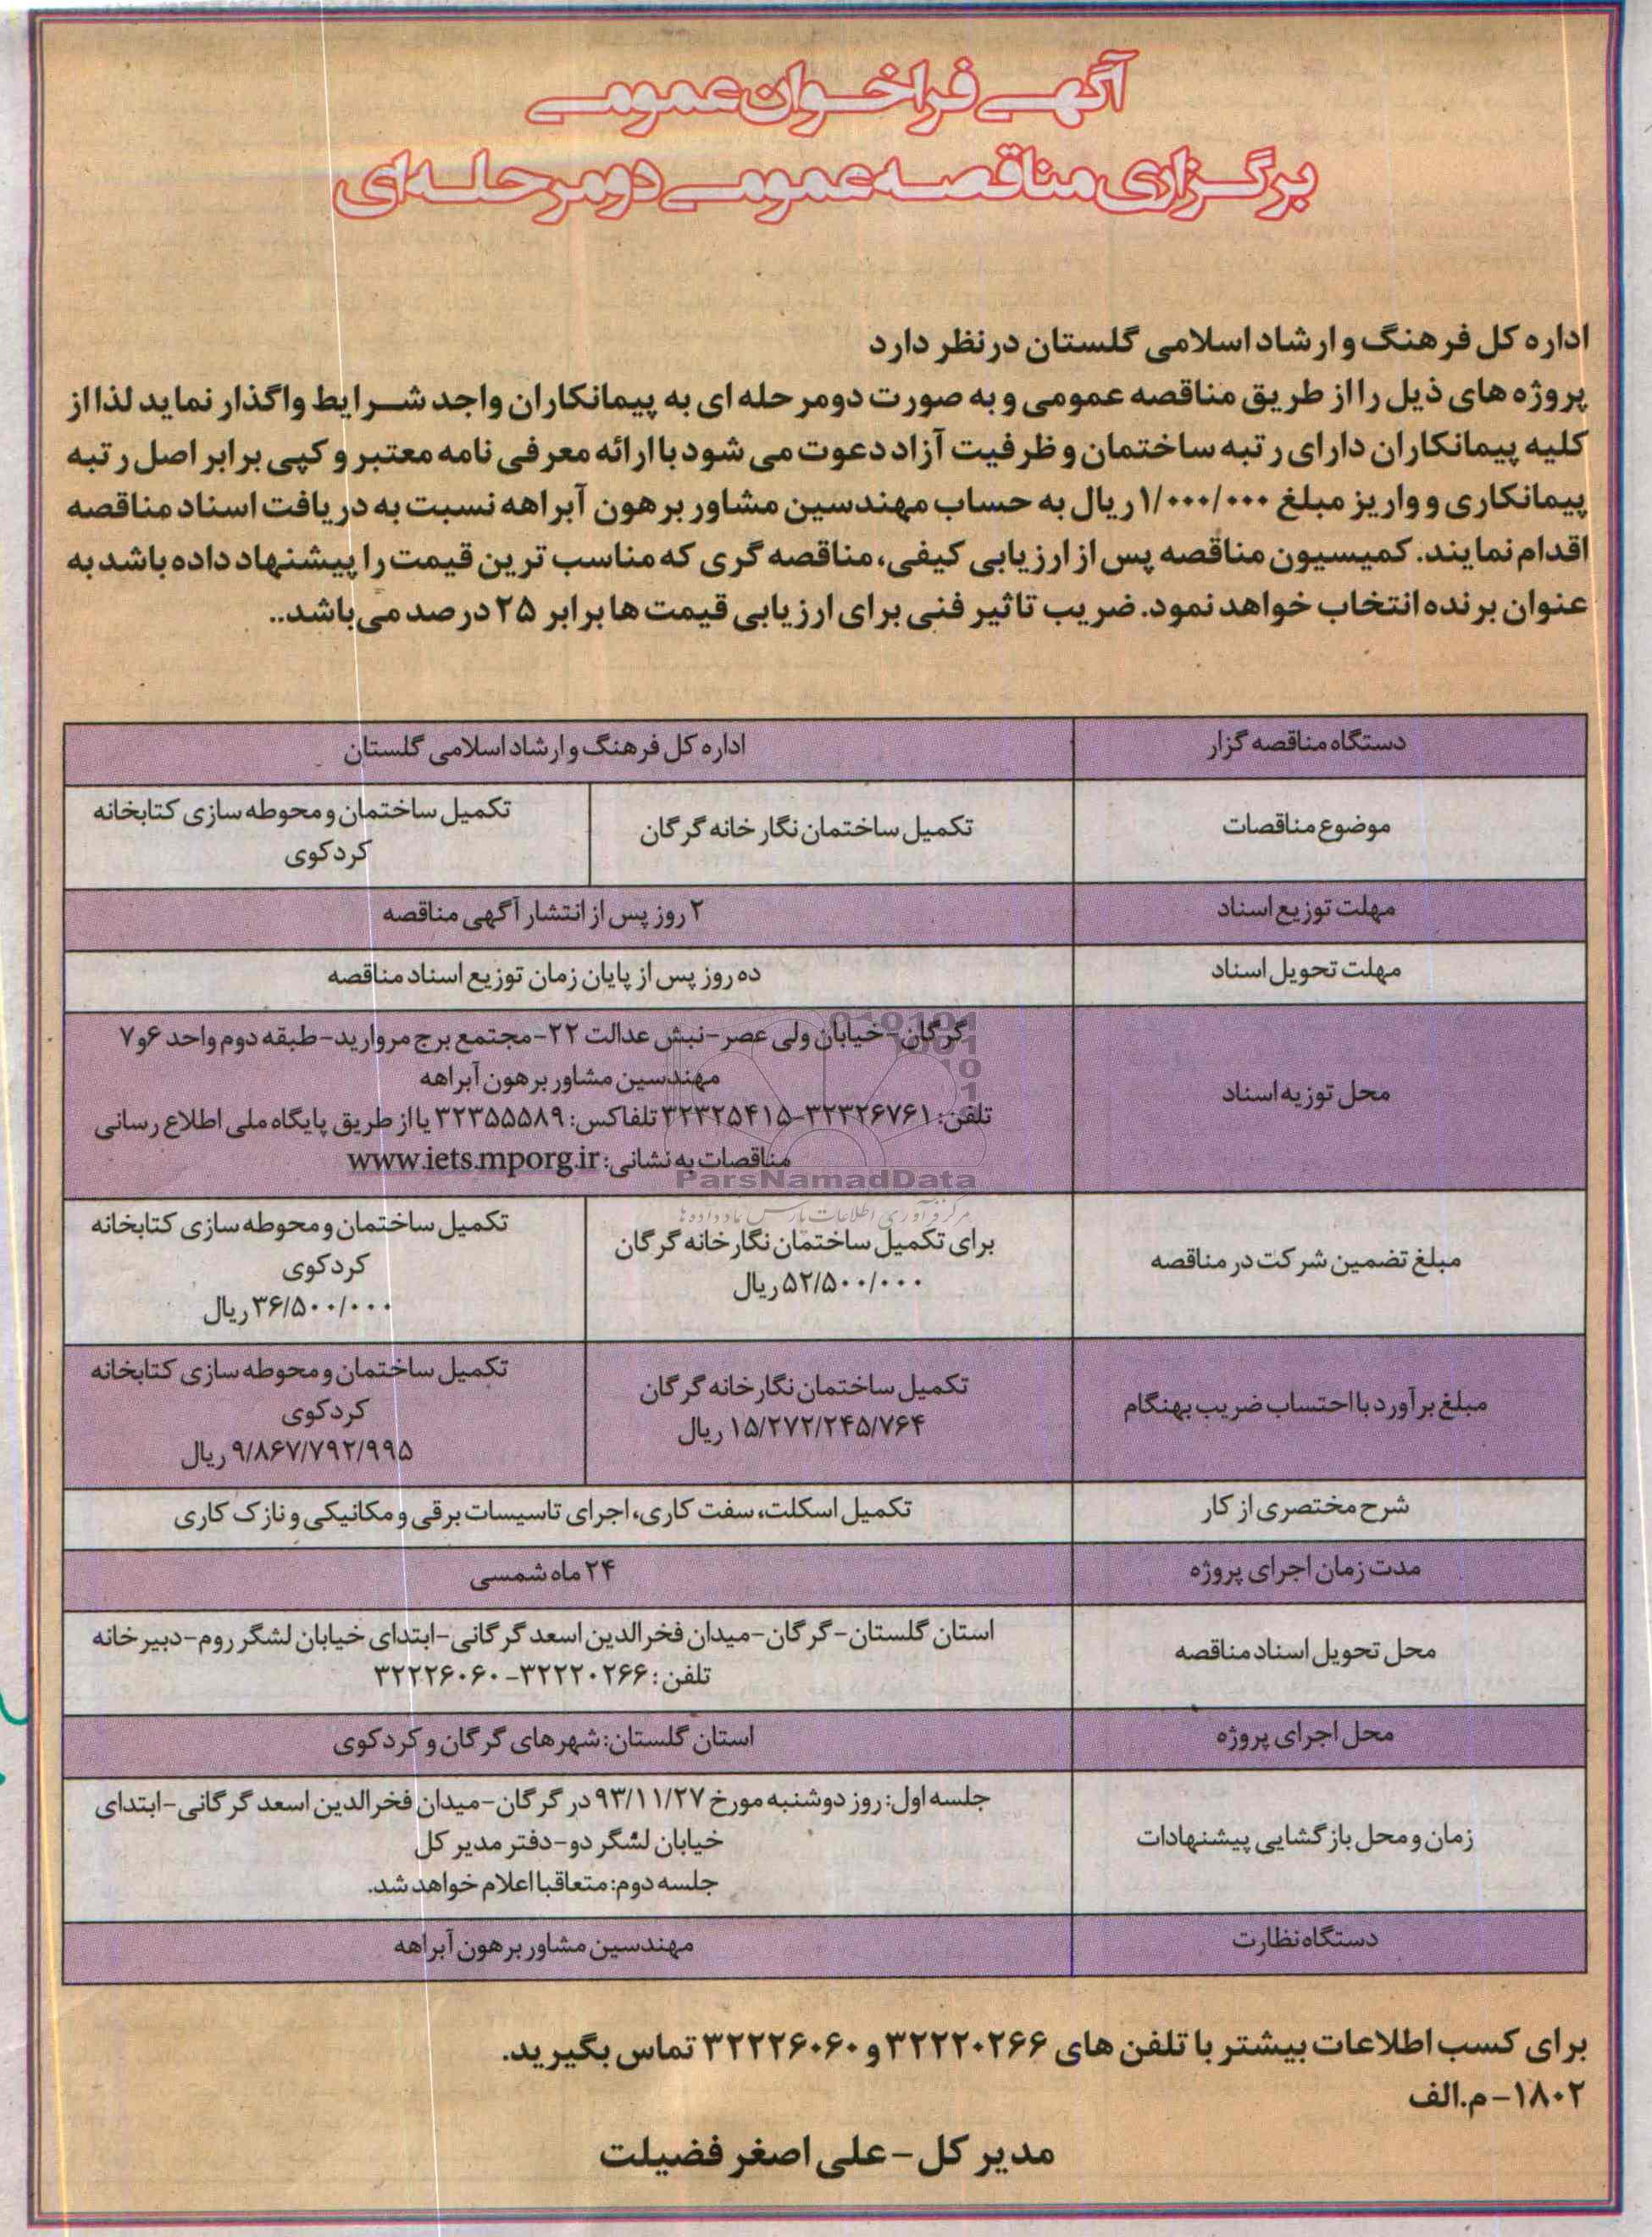 آگهی فراخوان عمومی
برگزاری مناقصه عمومی دومرحله‌ای
اداره کل فرهنگ و ارشاد اسلامی گلستان درنظر دارد
پروژه های ذیل را از طریق مناقصه عمومی و به صورت دومرحله ای به پیمانکاران واجد شرایط واگذار نماید لذا از
کلیه پیمانکاران دارای رتبه ساختمان و ظرفیت آزاد دعوت می شود با ارائه معرفی نامه معتبر و کپی برابر اصل رتبه
پیمانکاری و واریز مبلغ ۱/۰۰۰/۰۰۰ ریال به حساب مهندسین مشاور برهون آبراهه نسبت به دریافت اسناد مناقصه
اقدام نمایند. کمیسیون مناقصه پس از ارزیابی کیفی، مناقصه گری که مناسب ترین قیمت را پیشنهاد داده باشد به
عنوان برنده انتخاب خواهد نمود. ضریب تاثیر فنی برای ارزیابی قیمت ها برابر ۲۵ درصد می باشد..
دستگاه مناقصه گزار
اداره کل فرهنگ و ارشاد اسلامی گلستان
موضوع مناقصات
تکمیل ساختمان نگارخانه گرگان
تکمیل ساختمان و محوطه سازی کتابخانه
کردکوی
مهلت توزیع اسناد
۲ روز پس از انتشار آگهی مناقصه
مهلت تحویل اسناد
ده روز پس از پایان زمان توزیع اسناد مناقصه
محل توزیه اسناد
گرگان-خیابان ولی عصر-نبش عدالت ۲۲-مجتمع برج مروارید-طبقه دوم واحد ۶و۷
مهندسین مشاور برهون آبراهه
تلفن: ۳۲۳۲۶۷۶۱-۳۲۳۲۵۴۱۵ تلفاکس: ۳۲۳۵۵۵۸۹ یا از طریق پایگاه ملی اطلاع رسانی
مناقصات به نشانی: www.iets.mporg.ir
ParsNamadData
مرکز فرآوری اطلاعات پارس نماد داده ها
مبلغ تضمین شرکت در مناقصه
برای تکمیل ساختمان نگارخانه گرگان
۵۲/۵۰۰/۰۰۰ ریال
تکمیل ساختمان و محوطه سازی کتابخانه
کردکوی
۳۶/۵۰۰/۰۰۰ ریال
مبلغ برآورد با احتساب ضریب بهنگام
تکمیل ساختمان نگارخانه گرگان
۱۵/۲۷۲/۲۴۵/۷۶۴ ریال
تکمیل ساختمان و محوطه سازی کتابخانه
کردکوی
۹/۸۶۷/۷۹۲/۹۹۵ ریال
شرح مختصری از کار
تکمیل اسکلت، سفت کاری، اجرای تاسیسات برقی و مکانیکی و نازک کاری
مدت زمان اجرای پروژه
۲۴ ماه شمسی
محل تحویل اسناد مناقصه
استان گلستان-گرگان-میدان فخرالدین اسعد گرگانی-ابتدای خیابان لشگر روم-دبیرخانه
تلفن: ۳۲۲۲۰۲۶۶-۳۲۲۲۶۰۶۰
محل اجرای پروژه
استان گلستان: شهرهای گرگان و کردکوی
زمان و محل بازگشایی پیشنهادات
جلسه اول: روز دوشنبه مورخ ۹۳/۱۱/۲۷ در گرگان-میدان فخرالدین اسعد گرگانی-ابتدای
خیابان لشگر دو-دفتر مدیر کل
جلسه دوم: متعاقبا اعلام خواهد شد.
دستگاه نظارت
مهندسین مشاور برهون آبراهه
برای کسب اطلاعات بیشتر با تلفن های ۳۲۲۲۰۲۶۶ و ۳۲۲۲۶۰۶۰ تماس بگیرید.
۱۸۰۲-م.الف
مدیر کل-علی اصغر فضیلت